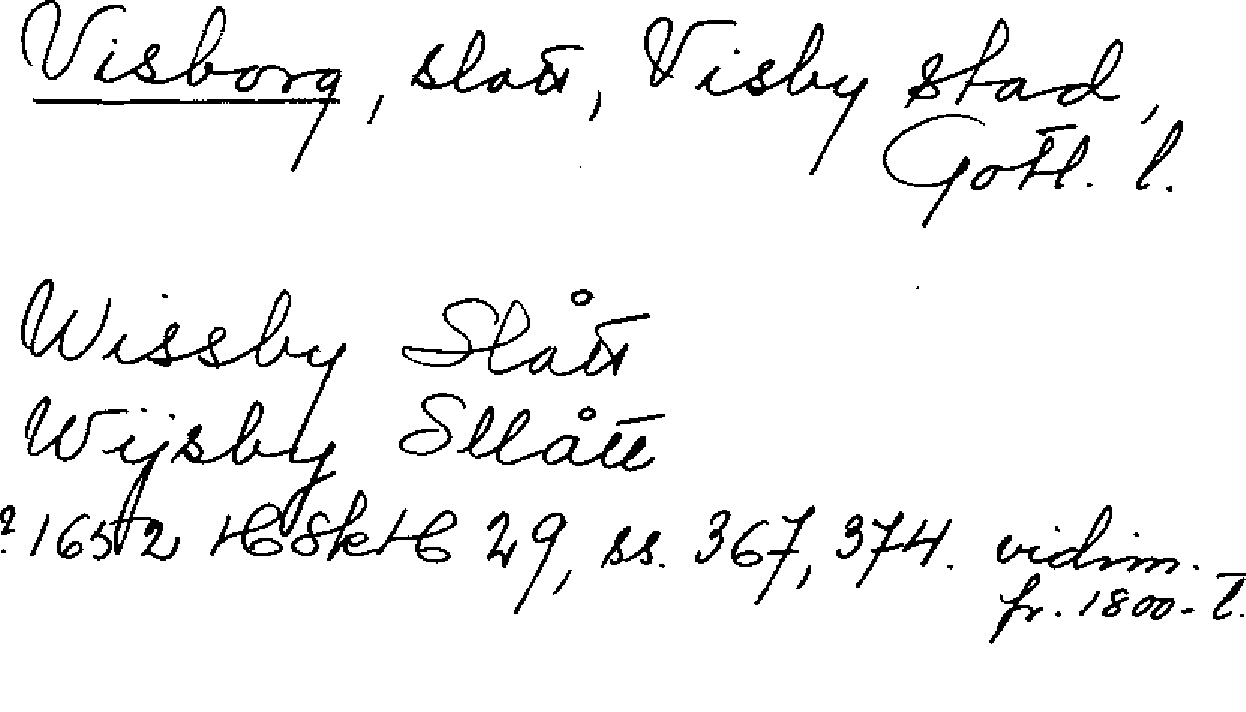 Visborg, slott, Visby stad,
Gotl. l.
Wissby Slått
Wijsby Sllått
? 1652 HSkH 29, ss. 367, 374. vidim.
fr. 1800-t.